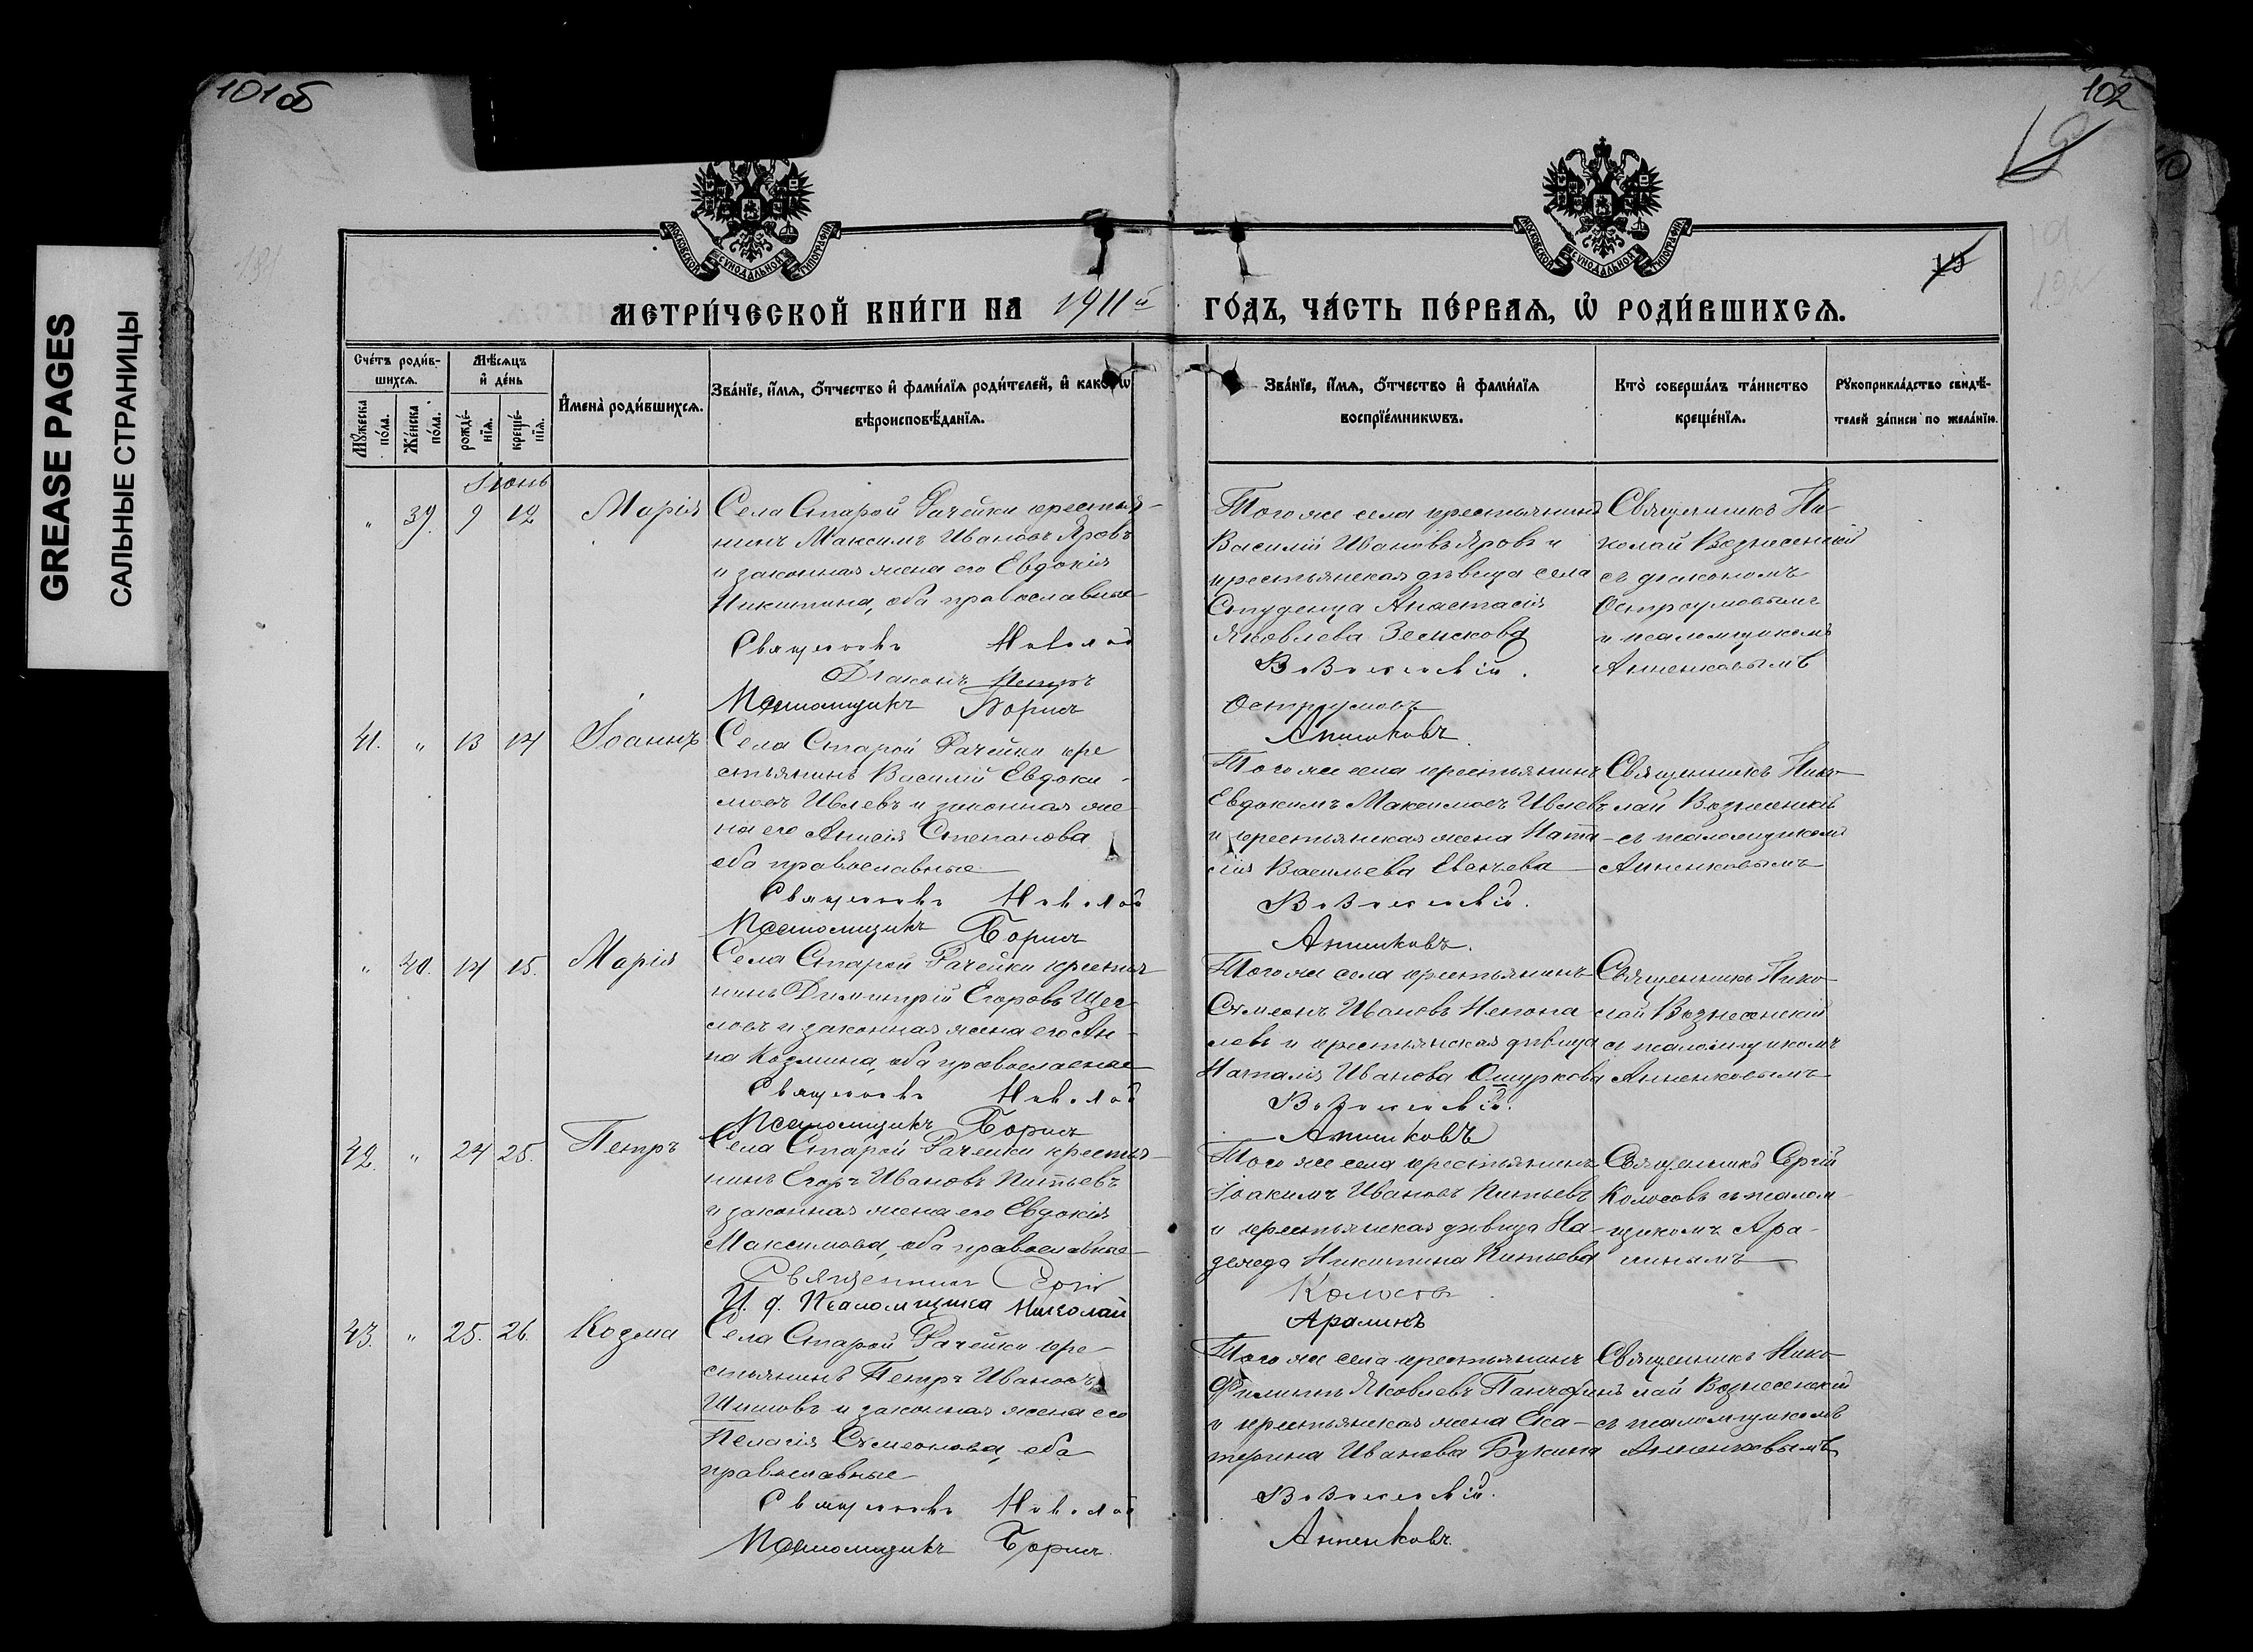 101об
102
GREASE PAGES
САЛЬНЫЕ СТРАНИЦЫ
МОСКОВСКОЙ СѴНОДАЛЬНОЙ ТИПОГРАФІИ
МОСКОВСКОЙ СѴНОДАЛЬНОЙ ТИПОГРАФІИ
МЕТРИ́ЧЕСКОЙ КНИ́ГИ НА 1911й ГО́ДЪ, ЧА́СТЬ ПЕ́РВАѦ, Ѡ҆ РОДИ́ВШИХСѦ.
Сче́тъ роди́в-
шихсѧ.
Мꙋ́жеска
по́ла.
Же́нска
по́ла.
Мѣ́сѧцъ
и҆ де́нь
рожде́-
нїѧ.
креще́-
нїѧ.
И҆мена̀ роди́вшихсѧ.
Зва́нїе, и҆́мѧ, ѻ҆́тчество и҆ фами́лїѧ роди́телей, и҆ како́гѡ
вѣроисповѣ́данїѧ.
Зва́нїе, и҆́мѧ, ѻ҆́тчество и҆ фами́лїѧ
воспрїе́мникѡвъ.
Кто̀ соверша́лъ та́инство
креще́нїѧ.
Рꙋкоприкла́дство свидѣ́-
телей за́писи по жела́нїю.
Іюнь
" 39. 9 12 Марія
Села Старой Рачейки крестья-
нинъ Максимъ Ивановъ Яровъ
и законная жена его Евдокія
Никитина, оба православные
Священникъ Николай
Діаконъ Петръ
Псаломщикъ Борисъ
Того же села крестьянинъ
Василій Ивановъ Яровъ и
крестьянская дѣвица села
Студенца Анастасія
Яковлева Земскова
Вознесенскій.
Остроумовъ
Анненковъ.
Священникъ Ни-
колай Вознесенскій
съ діакономъ
Остроумовымъ
и псаломщикомъ
Анненковымъ
41. " 13 14 Іоаннъ
Села Старой Рачейки кре
стьянинъ Василій Евдоки-
мовъ Ивлевъ и законная же-
на его Анисія Степанова
оба православные
Священникъ Николай
Псаломщикъ Борисъ
Того же села крестьянинъ
Евдокимъ Максимовъ Ивлевъ
и крестьянская жена Ната-
лія Васильева
Вознесенскій.
Анненковъ.
Священникъ Нико-
лай Вознесенскій
съ псаломщикомъ
Анненковымъ
" 40. 14 15. Марія
Села Старой Рачейки крестья-
нинъ Димитрій Егоровъ Щег-
ловъ и законная жена его Ан-
на Козмина, оба православные
Священникъ Николай
Псаломщикъ Борисъ
Того же села крестьянинъ
Сѵмеонъ Ивановъ
и крестьянская дѣвица
Наталія Иванова Ошуркова
Вознесенскій.
Анненковъ
Священникъ Нико-
лай Вознесенскій
съ псаломщикомъ
Анненковымъ
42. " 24 25. Петръ
Села Старой Рачейки крестья-
нинъ Егоръ Ивановъ Питьевъ
и законная жена его Евдокія
Максимова, оба православные
Священникъ Сергій
И. д. Псаломщика Николай
Того же села крестьянинъ
Іоакимъ Ивановъ Питьевъ
и крестьянская дѣвица На-
дежда Никитина Питьева
Колосовъ
Аралинъ
Священникъ Сергій
Колосовъ съ псалом-
щикомъ Ара-
линымъ
43. " 25. 26. Козма
Села Старой Рачейки кре-
стьянинъ Петръ Ивановъ
Шишовъ и законная жена его
Пелагія Сѵмеонова, оба
православные
Священникъ Николай
Псаломщикъ Борисъ.
Того же села крестьянинъ
Филиппъ Яковлевъ Панчофинъ
и крестьянская жена Ека-
терина Иванова Букина
Вознесенскій.
Анненковъ.
Священникъ Нико-
лай Вознесенскій
съ псаломщикомъ
Анненковымъ